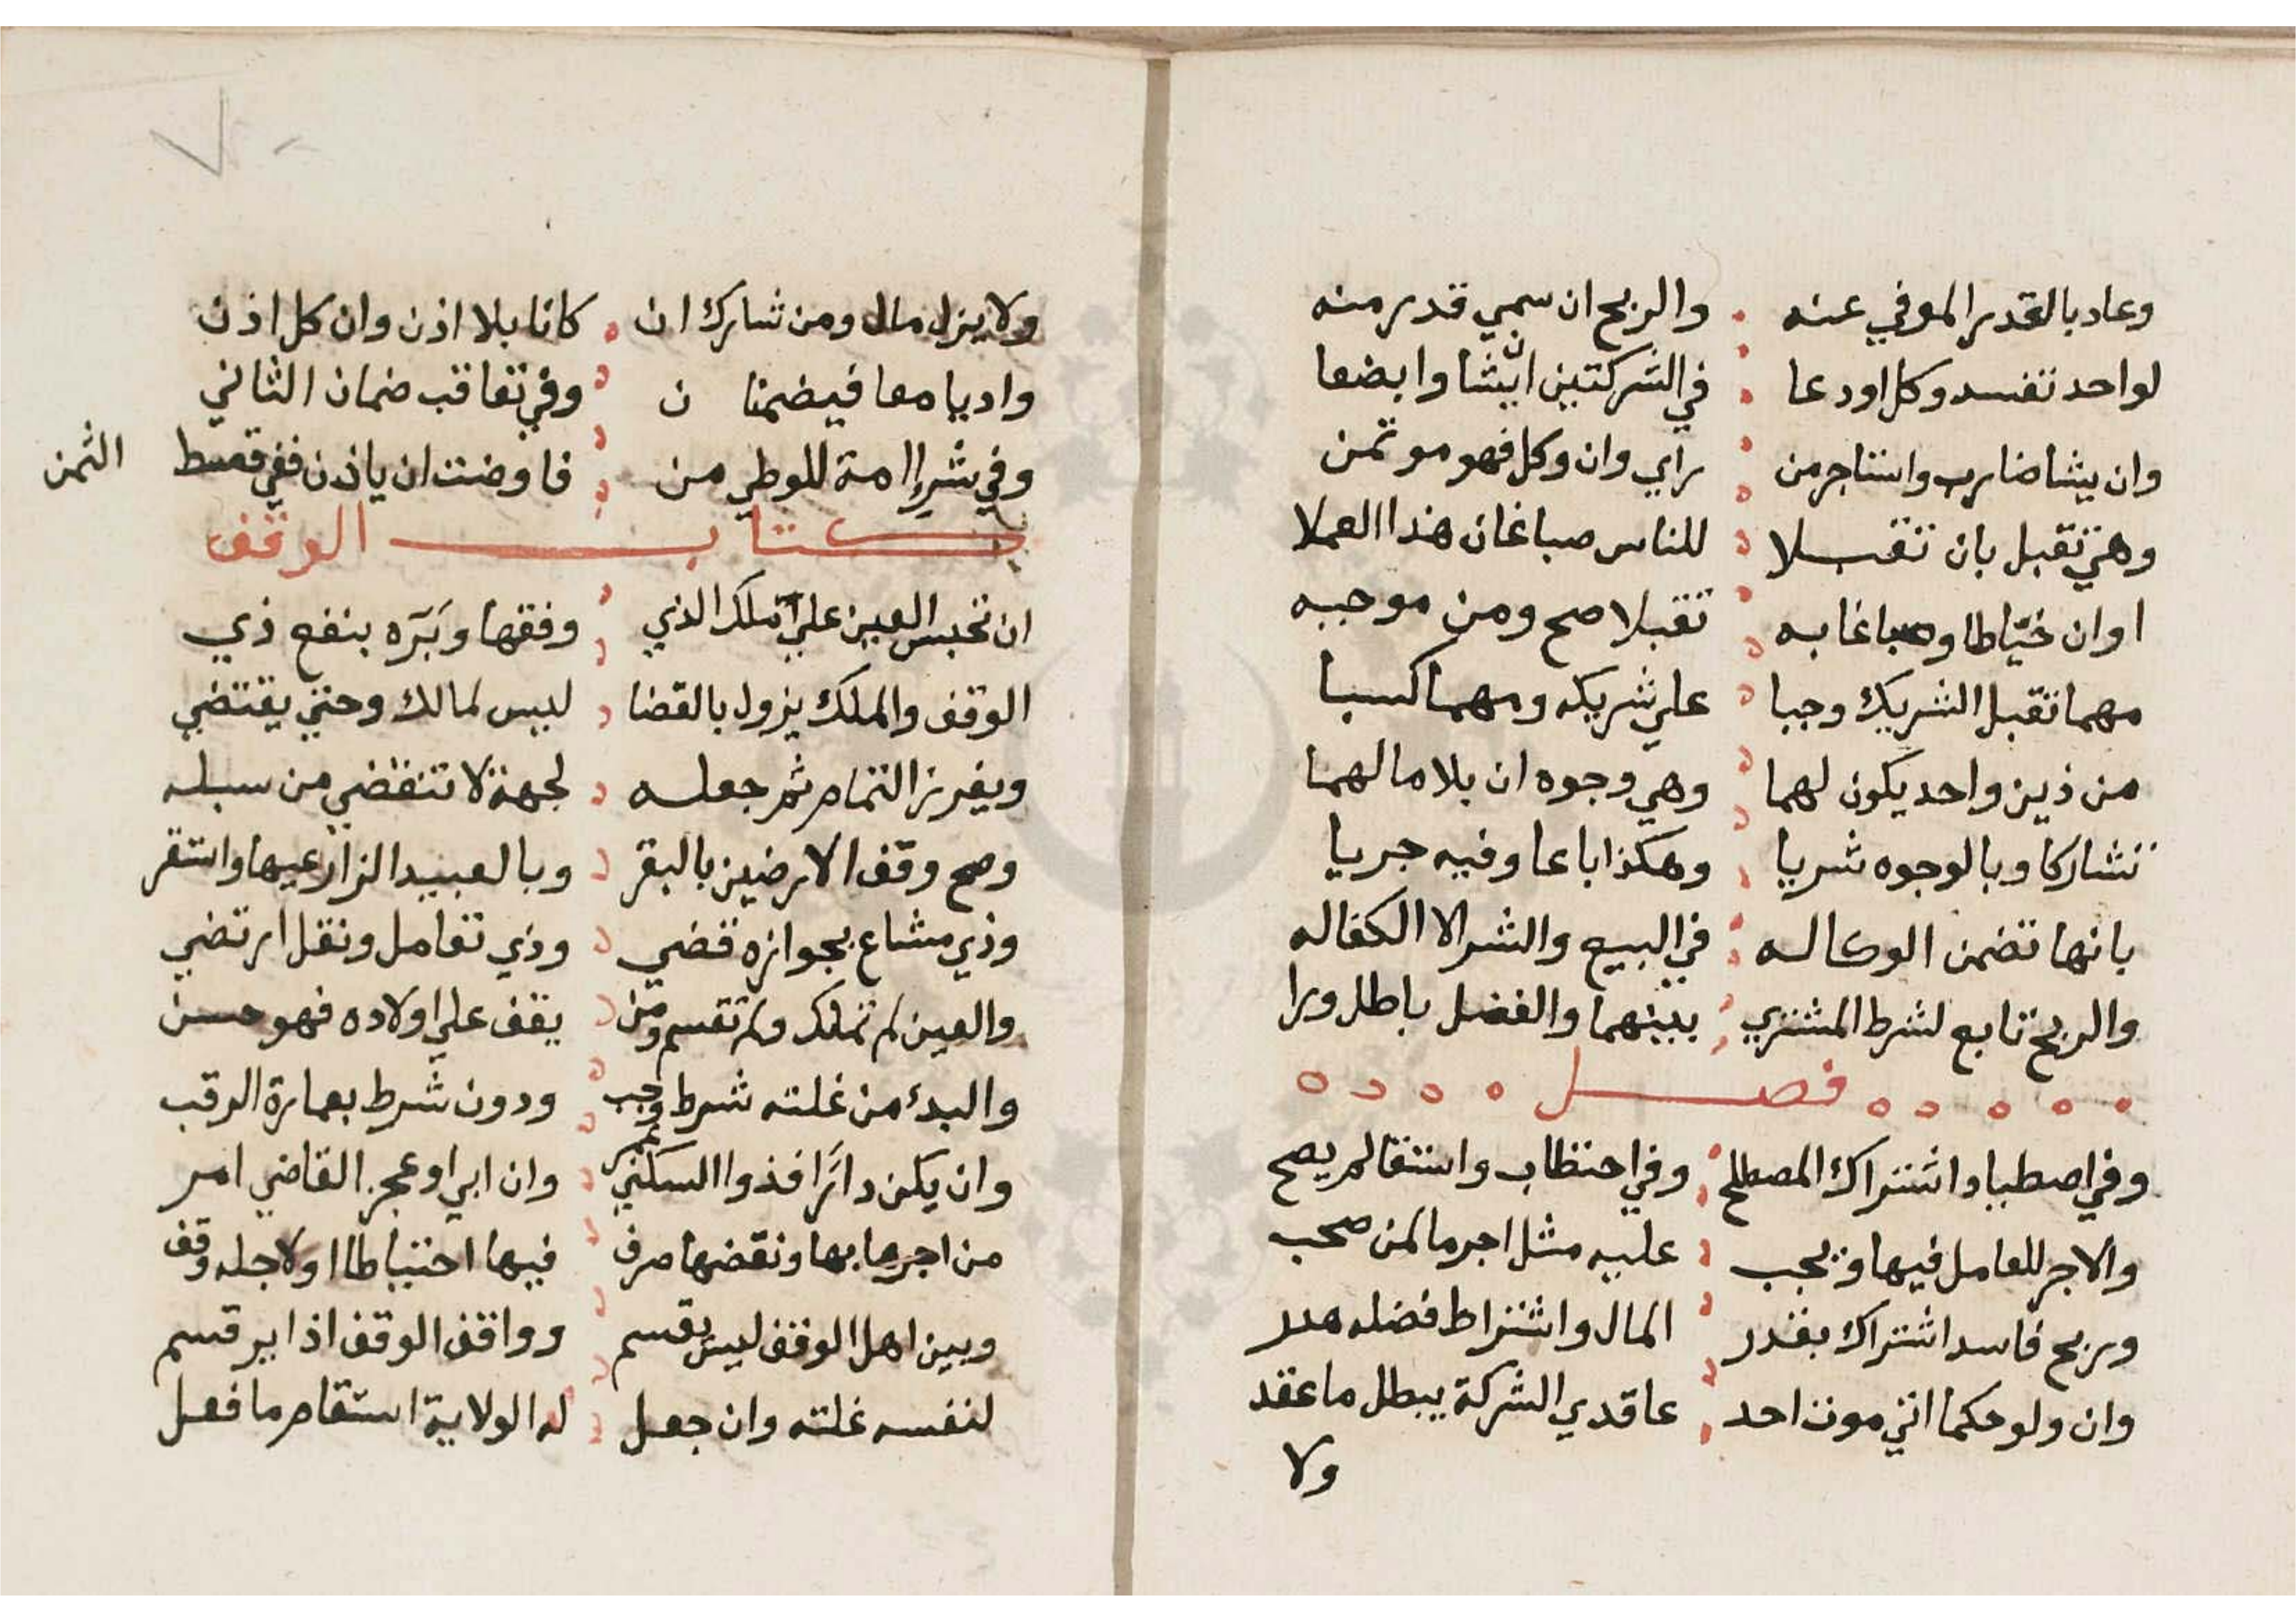 وعاد بالقدر الموفي عنه والربح ان سمي قدر منه
لواحد تفسد وكل اودعا في الشركتين ان يشا وابضعا
وان يشا ضارب واستاجر من راي وان وكل فهو موتمن
وهي تقبل بان تقبلا للناس صباغان هذا العملا
او ان خيّاطا وصباغا به تقبلا صح ومن موجبه
مهما تقبل الشريك وجبا علي شريكه ومهما كسبا
من ذين واحد يكون لهما وهي وجوه ان بلا ما لهما
تشاركا وبالوجوه شريا وهكذا باعا وفيه جريا
بانها تضمن الوكاله في البيع والشرا لا الكفاله
والربح تابع لشرط المشتري بينهما والفضل باطل ورا
فصل
وفي اصطياد اشتراك المصطلح وفي احتطاب واستقا لم يصح
والاجر للعامل فيها ويجب عليه مثل اجر ما لمن صحب
وربح فاسد اشتراك بقدر المال واشتراط فضله هدر
وان ولو حكما اتي موت احد عاقدي الشركة يبطل ما عقد
ولا
ولا يزل مال ومن شارك ان كانا بلا اذن وان كل اذن
واديا معا فيضمنا ن وفي تعاقب ضمان الثاني
وفي شرا امة للوطي من فاوضت ان ياذن ففي قسط الثمن
كتاب الوقف
ان تحبس العين علي ملك الذي وفقها وبَرّه بنفع ذي
الوقف والملك يزول بالقضا ليس لمالك وحتي يقتضي
ويفرز التمام ثم جعله لجهة لا تنقضي من سبله
وصح وقف الارضين بالبقر وبالعبيد الزارعيها واستقر
وذي مشاع بجوازه قضي وذي تعامل ونقل ارتضي
والعين لم تملك ولم تقسم ومن يقف علي اولاده فهو حسن
والبدء من غلته شرط وجب ودون شرط بعمارة الرقب
وان يكن دارًا فذوا السكني عمر وان ابي او عجز القاضي امر
من اجرها بها ونقضها صرف فيها احتياطا او لاجله وقف
وبين اهل الوقف ليس يقسم وواقف الوقف اذا يرقسم
لنفسه غلته وان جعل له الولاية استقام ما فعل